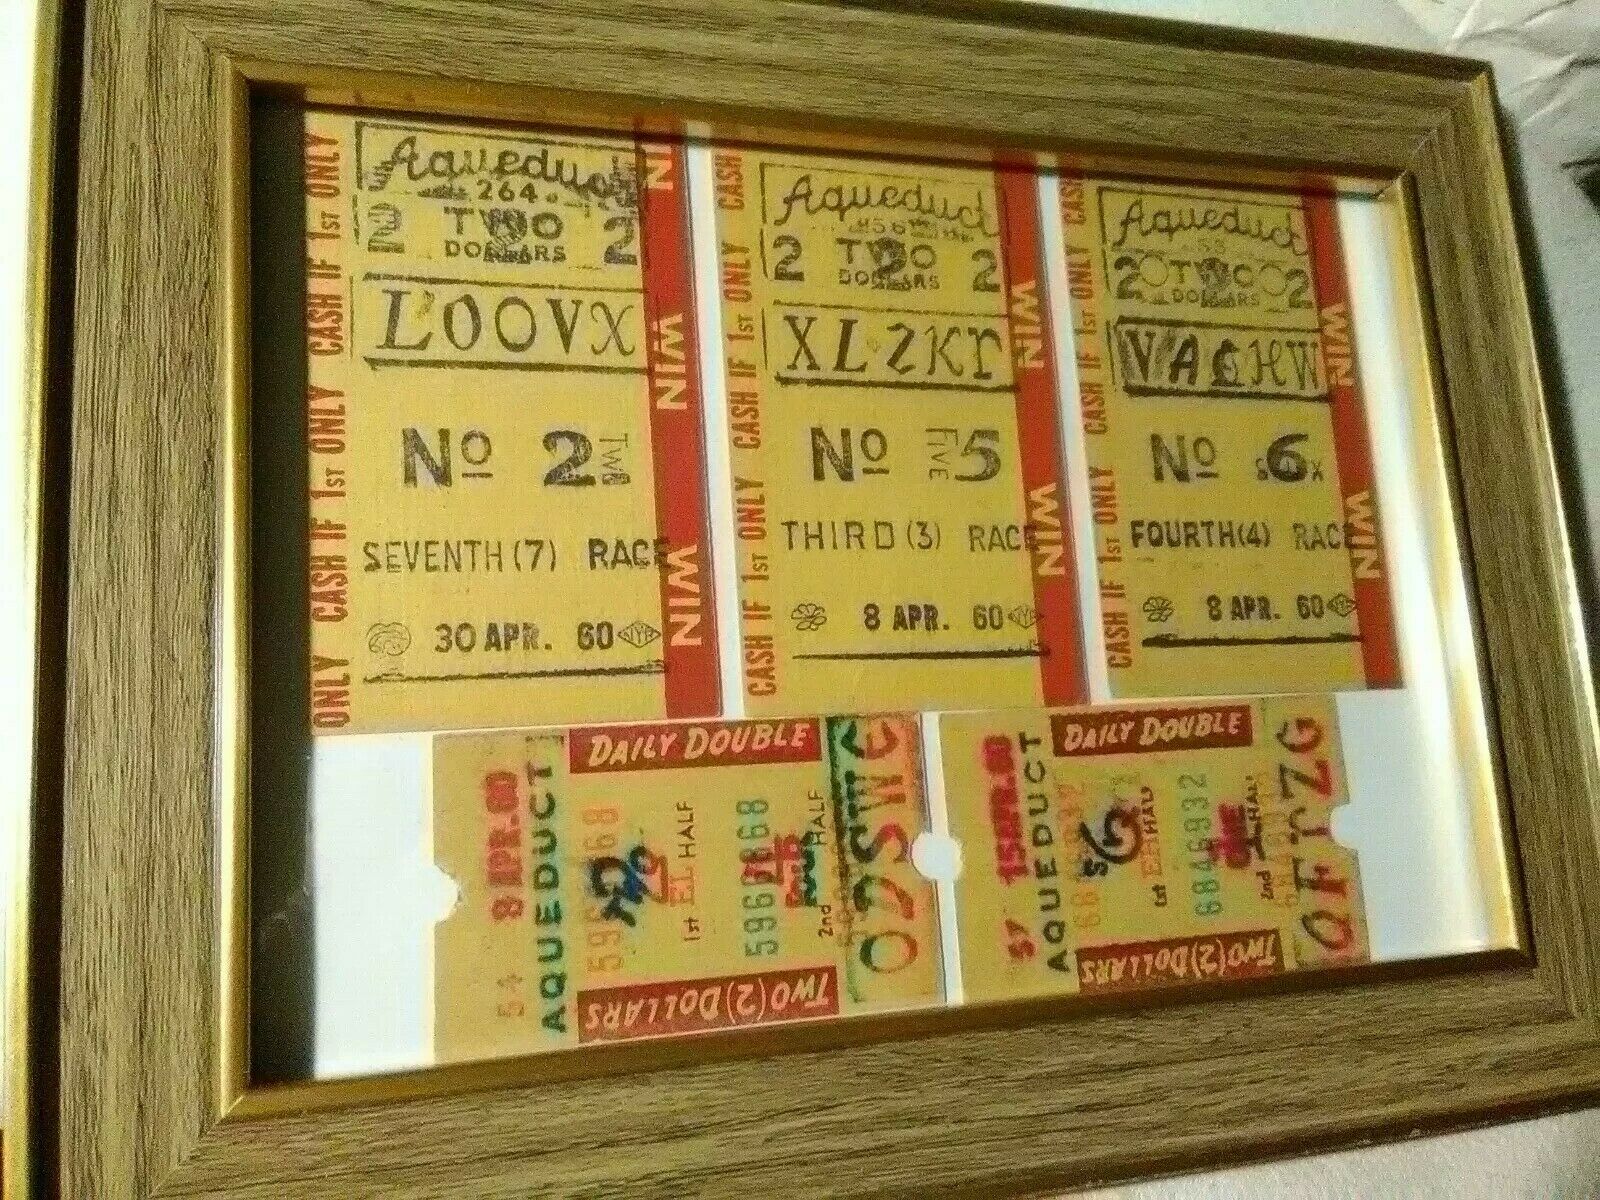 ONLY CASH IF 1ST ONLY CASH IF 1ST ONLY
Aqueduct
264
2 TWO 2
DOLLARS
LOOVX
No 2
SEVENTH (7) RACE
30 APR. 60
WIN
WIN
WIN
CASH IF 1ST ONLY CASH IF 1ST ONLY CASH
Aqueduct
2 TWO 2
DOLLARS
XLZKr
No FIVE 5
THIRD (3) RACE
8 APR. 60
WIN
WIN
CASH IF 1ST ONLY CASH IF 1ST ONLY CASH
Aqueduct
2 TWO 2
DOLLARS
No 6
FOURTH (4) RACE
8 APR. 60
WIN
WIN
DAILY DOUBLE
8 APR. 60
AQUEDUCT
1st HALF
2nd HALF
TWO (2) DOLLARS
DAILY DOUBLE
15 APR. 60
AQUEDUCT
6
1st HALF
6846932
2nd HALF
TWO (2) DOLLARS